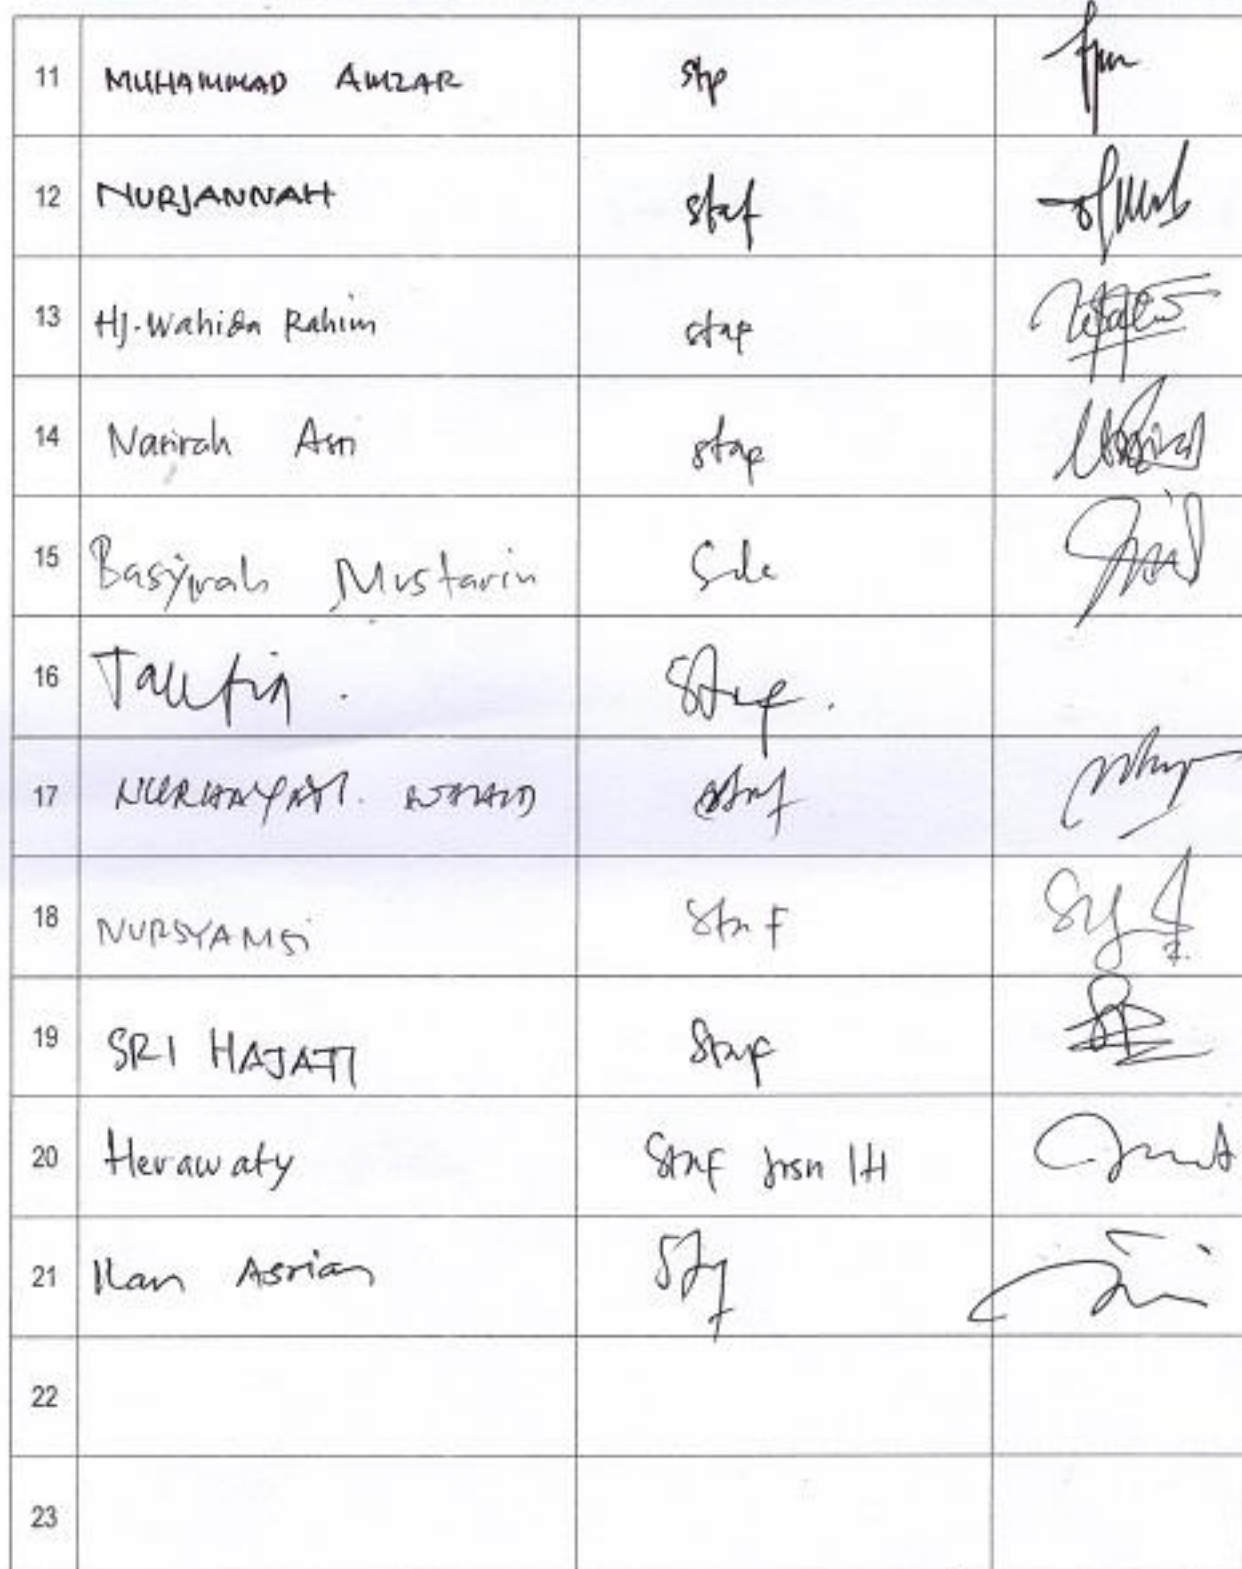 11 MUHAMMAD AMZAR stap
12 NURJANNAH staf
13 Hj. Wahida Rahim stap
14 Nasirah Asri stap
15 Basyirah Mustarin
16 Taufiq . Staf .
17 NURHAYATI. WAHID staf
18 NURSYAMSI Staf
19 SRI HAJATI Staf
20 Herawaty Staf Jrsn IH
21 Ilan Asrian
22
23